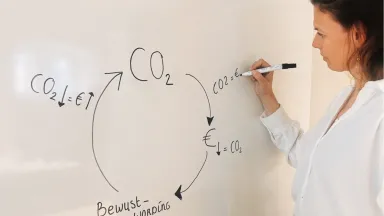 CO₂
CO₂ = €
CO₂↓ = €↑
€↓ = CO₂
BEWUST-
WORDING